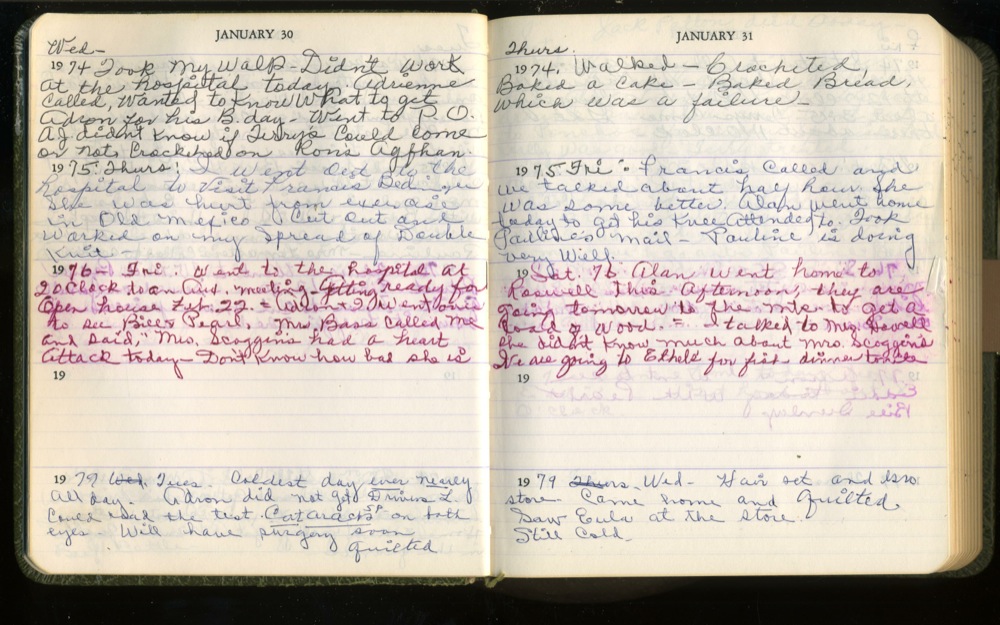 JANUARY 30
Wed-
1974 Took my walk - Didn't work
at the hospital today. Adrienne
called, wanted to know what to get
Adron for his B.day - Went to P.O.
Crocheted on Ron's Agfhan.
1975. Thurs: I went out to the
hospital to visit Francis
She was hurt from
in Old Mexico. Cut out and
worked on my Spread of Double
Knit -
1976 - Fri. Went to the hospital at
2 o'clock to an Aux. meeting - getting ready for
Open house Feb. 22 - Adron & I went
to see Bill & Pearl. Mr. Bass called me
and said, "Mrs. Scoggins had a heart
attack today - Dont know how bad she is
19
1979 Wed. Tues. Coldest day ever nearly
all day. Adron did not get Drivers L.
Could sad the test. Cataracts sp on both
eyes. Will have surgery soon
quilted
JANUARY 31
Thurs.
1974. Walked - Crocheted,
Baked a Cake - Baked Bread,
which was a failure -
1975 Fri: Francis called and
we talked about half hour. She
was some better. Alan went home
today to get his Knee Attended to. Took
Pauline's mail - Pauline is doing
very well.
19 Sat. 76 Alan went home to
Roswell this afternoon, they are
going tomorrow to the mts. to get a
load of wood. - I talked to Mrs. Howell
she didn't know much about Mrs. Scoggins
We are going to Ethels for fish dinner tonite
19
1979 Thurs. Wed - Hair set and Gro
store. Came home and Quilted
Saw Eula at the store.
Still Cold.